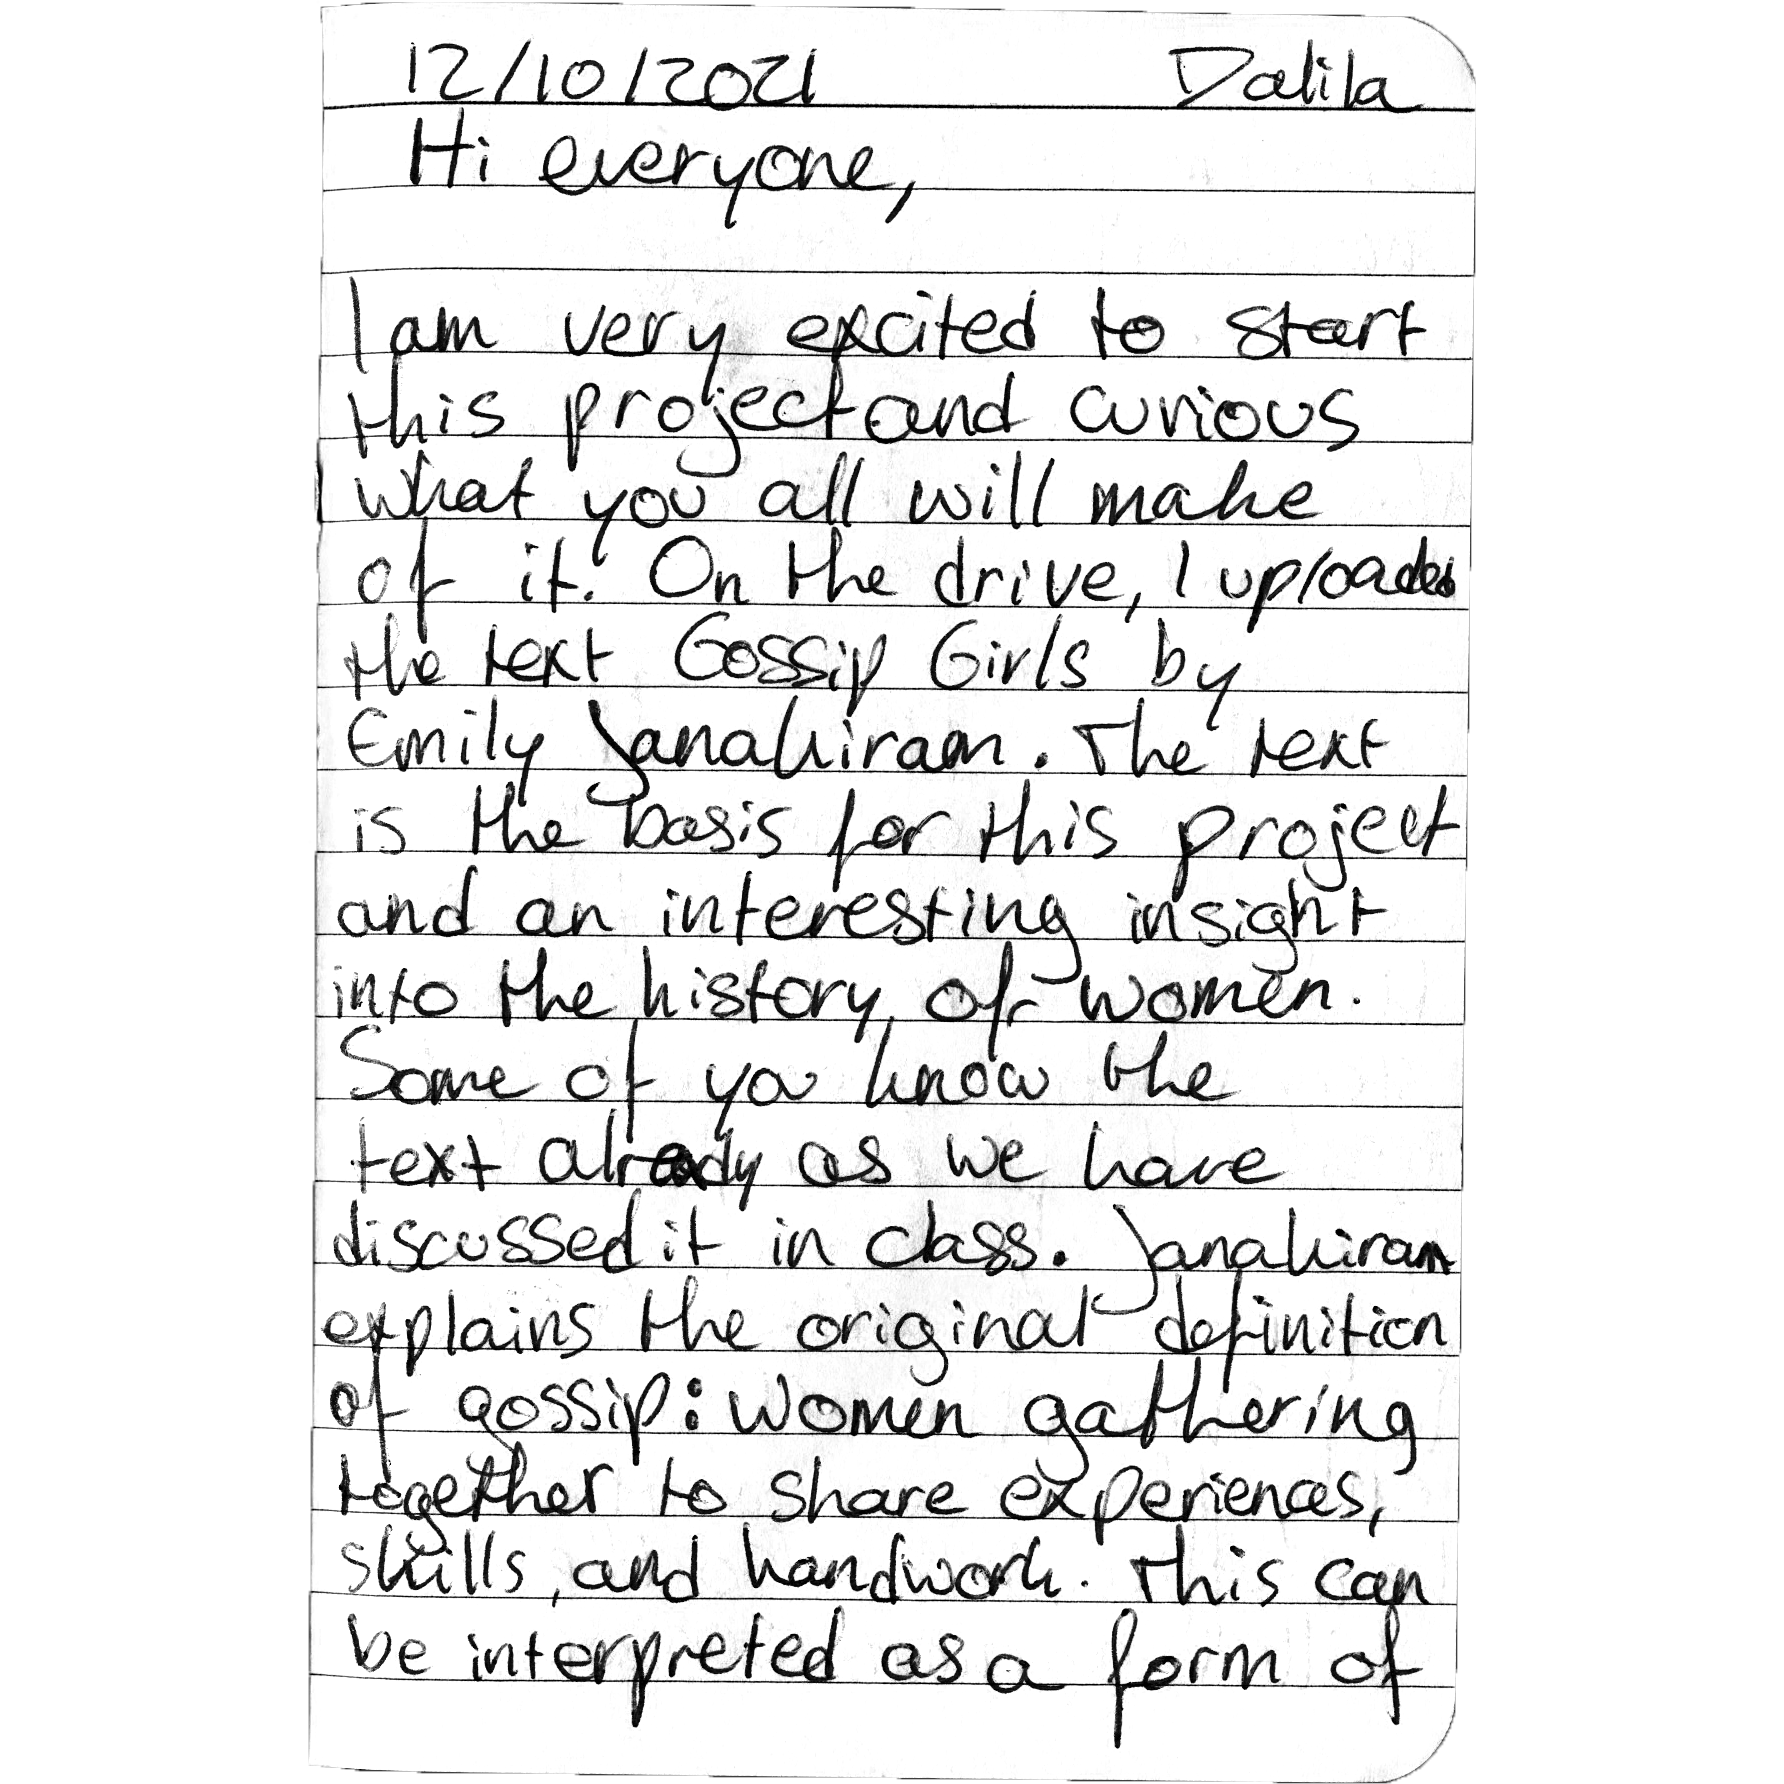 12/10/2021 Dalila
Hi everyone,
I am very excited to start
this project and curious
what you all will make
of it. On the drive, I uploaded
the text Gossip Girls by
Emily Janakiram. The text
is the basis for this project
and an interesting insight
into the history of women.
Some of you know the
text already as we have
discussed it in class. Janakiram
explains the original definition
of gossip: women gathering
together to share experiences,
skills, and handwork. This can
be interpreted as a form of